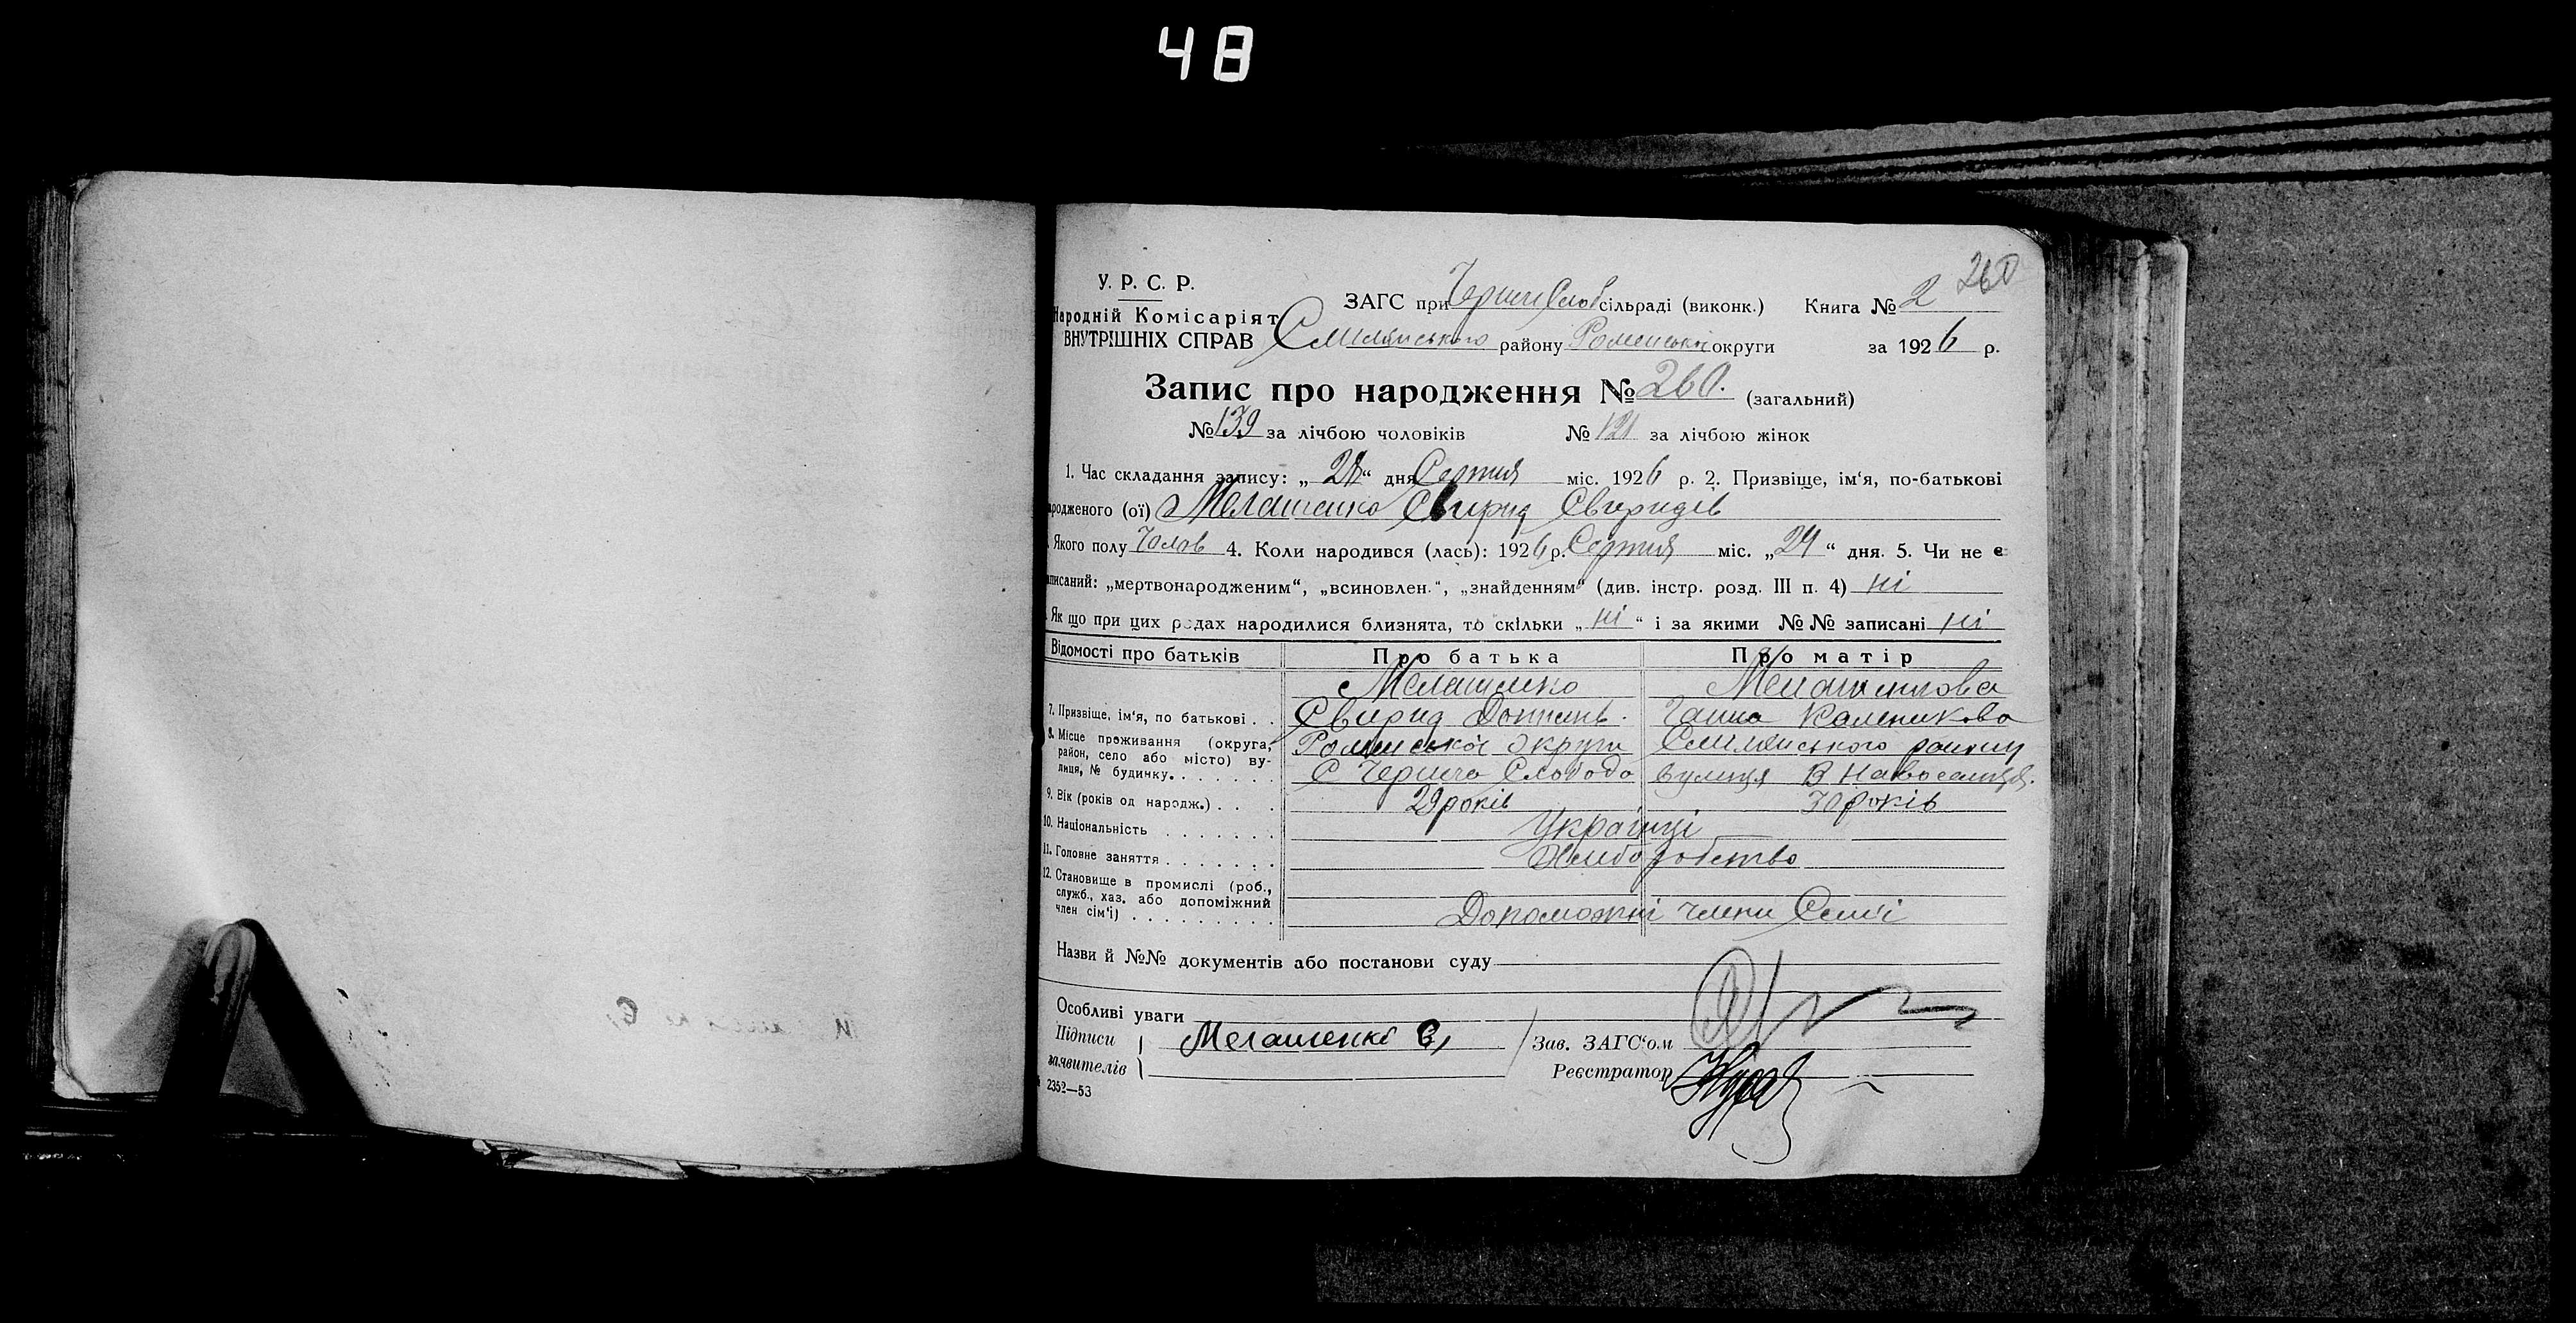 48
260
У. Р. С. Р.
Народній Комісаріят
ВНУТРІШНІХ СПРАВ
ЗАГС при Чернеч Слоб сільраді (виконк.) Книга № 2
Смілянського району Роменської округи за 1926 р.
Запис про народження № 260. (загальний)
№ 139 за лічбою чоловіків № 121 за лічбою жінок
1. Час складання запису: „28“ дня Серпня міс. 1926 р. 2. Призвіще, ім‘я, по-батькові
родженого (ої) Мелашенко Свирид Свиридів
Якого полу Чолов 4. Коли народився (лась): 1926 р. Серпня міс. „24“ дня. 5. Чи не є
записаний: „мертвонародженим“, „всиновлен.“, „знайденням“ (див. інстр. розд. III п. 4) ні
Як що при цих родах народилися близнята, то скільки „ні“ і за якими №№ записані ні
Відомості про батьків Про батька Про матір
Мелашенко Мелашенкова
7. Призвіще, ім‘я, по батькові . . Свирид Ганна Каленикова
8. Місце проживання (округа, район, село або місто) вулиця, № будинку. Роменської округи Смілянського району
С Чернеча Слобода вулиця В Новоселиця.
9. Вік (років од народж.) . . . 29 років 30 років
10. Національність . . . . . . . Українці
11. Головне заняття . . . . . . . Хлиборобство
12. Становище в промислі (роб., служб., хаз. або допоміжний член сім‘ї) . . . . . . . . . Допоможні члени Семї
Назви й №№ документів або постанови суду
Особливі уваги
Підписи заявителів Мелашенко С, Зав. ЗАГС‘ом
Реєстратор
2352—53